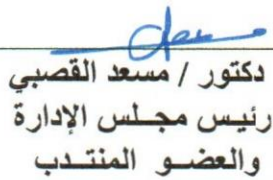 دكتور / مسعد القصبي
رئيس مجلس الإدارة
والعضو المنتدب